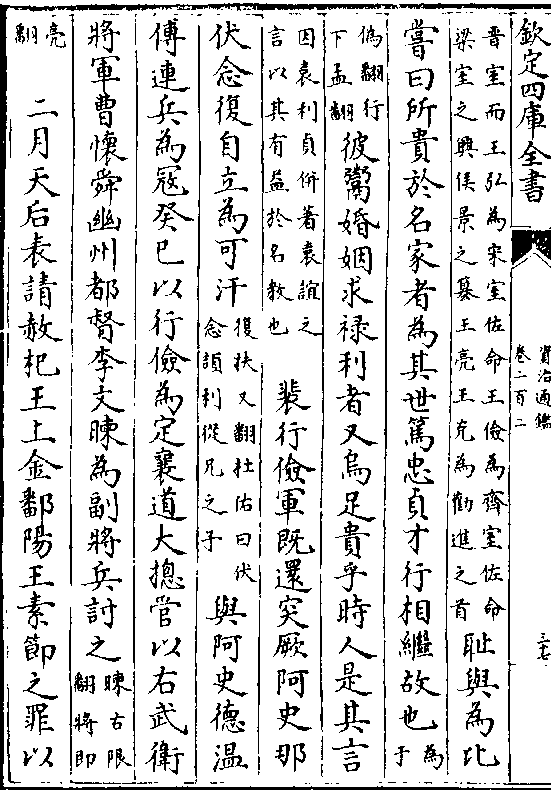 欽定四庫全書
資治通鑑
卷二百二
三七
晉室而王弘為宋室佐命王儉為齊室佐命
梁室之興侯景之簒王亮王克為勸進之首
恥與為比
嘗曰所貴於名家者為其世篤忠貞才行相繼故也
為
于
偽翻行
下孟翻
彼鬻婚姻求禄利者又烏足貴乎時人是其言
因袁利貞併著袁誼之
言以其有益於名教也
裴行儉軍既還突厥阿史那
伏念復自立為可汗
復扶又翻杜佑曰伏
念頡利從兄之子
與阿史德温
傅連兵為寇癸巳以行儉為定襄道大摠管以右武衛
將軍曹懷舜幽州都督李文暕為副將兵討之
暕古限
翻將即
亮
翻
二月天后表請赦杞王上金鄱陽王素節之罪以